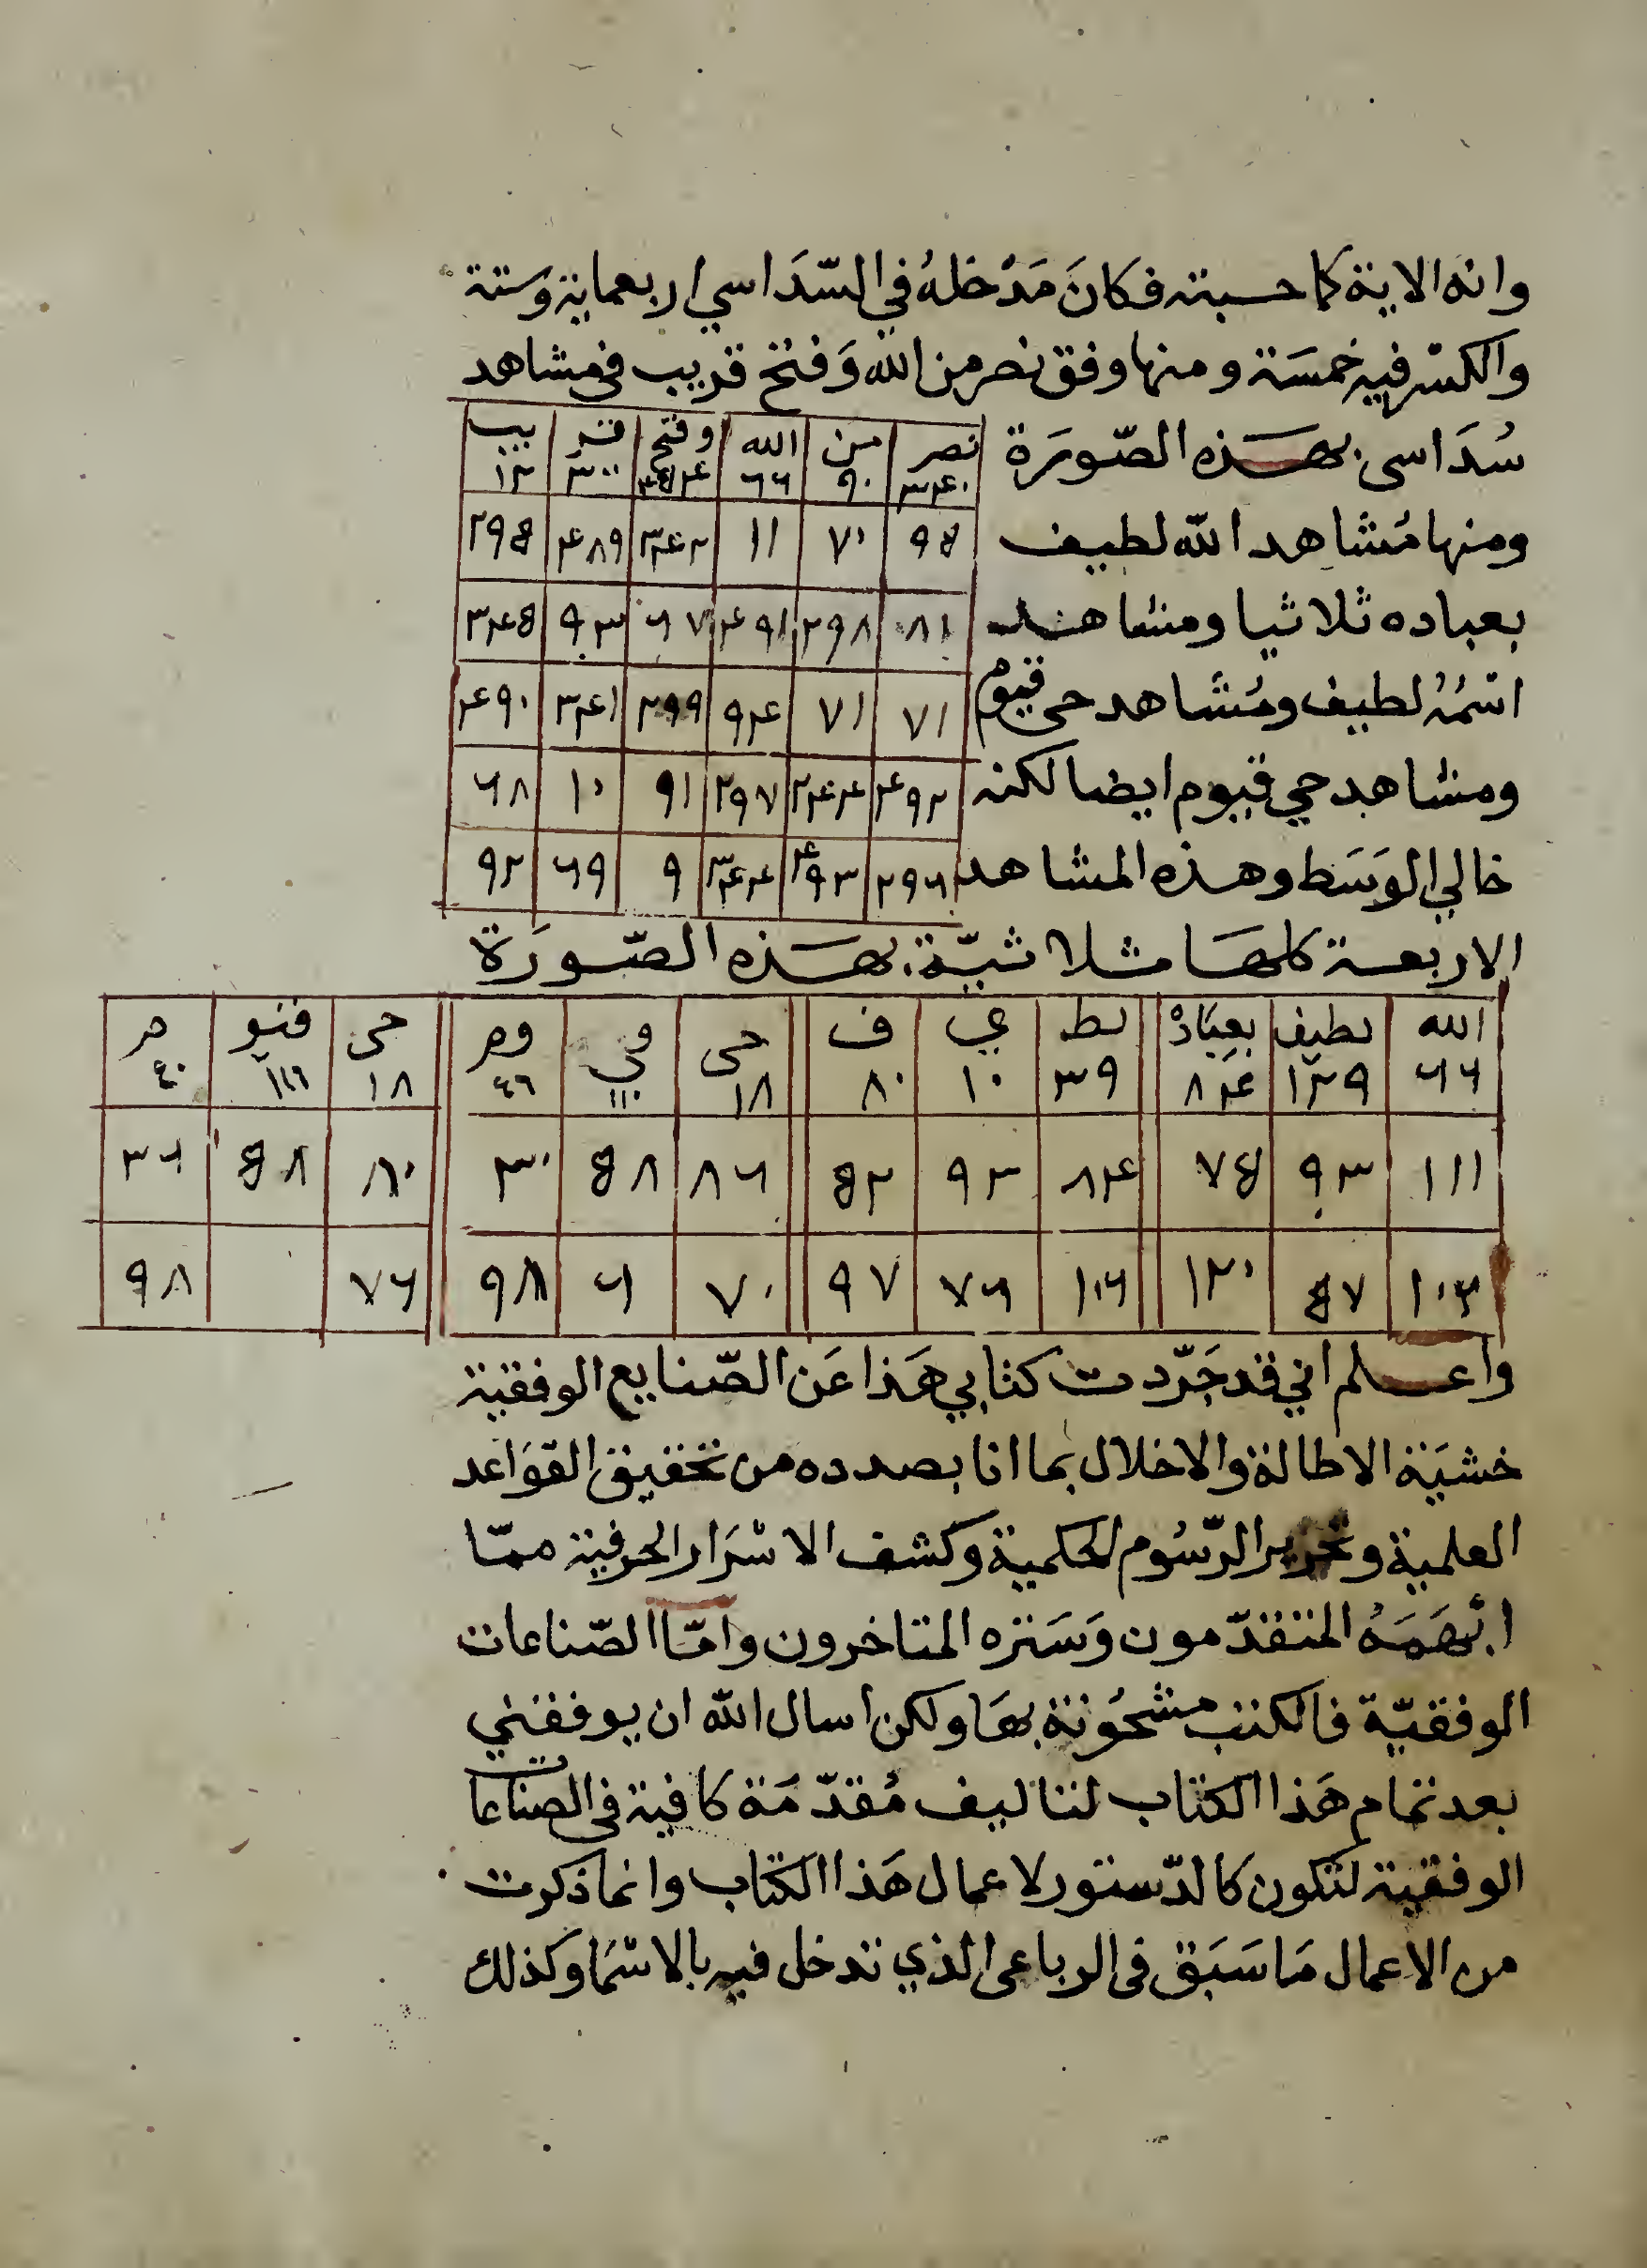 وانه الاية كما حسبته فكان مَدْخلهُ في السّدَاسي اربعماية وستة
والكسر فيه خمسَة ومنها وفق نصر من الله وَفتح قريب في مشاهد
سُدَاسى بهذه الصّورَة
نصر من الله وفتح قر يب
٣٤٠ ٩٠ ٦٦ ٤٩٤ ٣٠٠ ١٢
٩٥ ٧٠ ١١ ٣٤٢ ٤٨٩ ٢٩٥
٨١ ٢٩٨ ٤٩١ ٦٧ ٩٣ ٣٤٥
٧١ ٧١ ٩٤ ٢٩٩ ٣٤١ ٤٩٠
٤٩٢ ٣٤٤ ٢٩٧ ٩١ ١٠ ٦٨
٢٩٦ ٤٩٣ ٣٤٤ ٩ ٦٩ ٩٢
ومنها مُشَاهد الله لطيف
بعباده ثلاثيا ومشاهد
اسْمُهُ لطيف ومُشَاهد حى قيوم
ومشاهد حي قيوم ايضا لكنه
خالي الوَسَط وهذه المشاهد
الاربعة كلهَا مثلاثيّة بهَذه الصّورَة
الله لطيف بعبَادهْ لط ي ف حى قي وم حى قيو م
٦٦ ١٢٩ ٨٤ ٣٩ ١٠ ٨٠ ١٨ ١١٠ ٤٦ ١٨ ١١٦ ٤٠
١١١ ٩٣ ٧٥ ٨٤ ٩٣ ٥٢ ٨٦ ٥٨ ٣٠ ٨٠ ٥٨ ٣٦
١٠٢ ٥٧ ١٢٠ ١٠٦ ٧٦ ٩٧ ٧٠ ٦ ٩٨ ٧٦ ٩٨
واعلم اني قد جَرّدت كتابي هَذا عَن الصّنايع الوفقية
خشيَة الاطالة والاخلال بما انا بصدده من تحقيق القوَاعد
العلمية وتحرير الرّسُوم الحكمية وكشف الاسْرَار الحرفية ممّا
ابْهَمَهُ المتقدّمون وَسَتره المتاخرون وامّا الصّناعات
الوفقيّة فالكتب مشحُونة بهَا ولكن اسال الله ان يوفقني
بعد تمام هَذا الكتاب لتاليف مُقدّمَة كافية فى الصناعات
الوفقية لتكون كالدّستور لاعمال هَذا الكتاب وانما ذكرت
من الاعمال مَا سَبَق فى الرباعى الذي تدخل فيه بالاسْما وكذلك